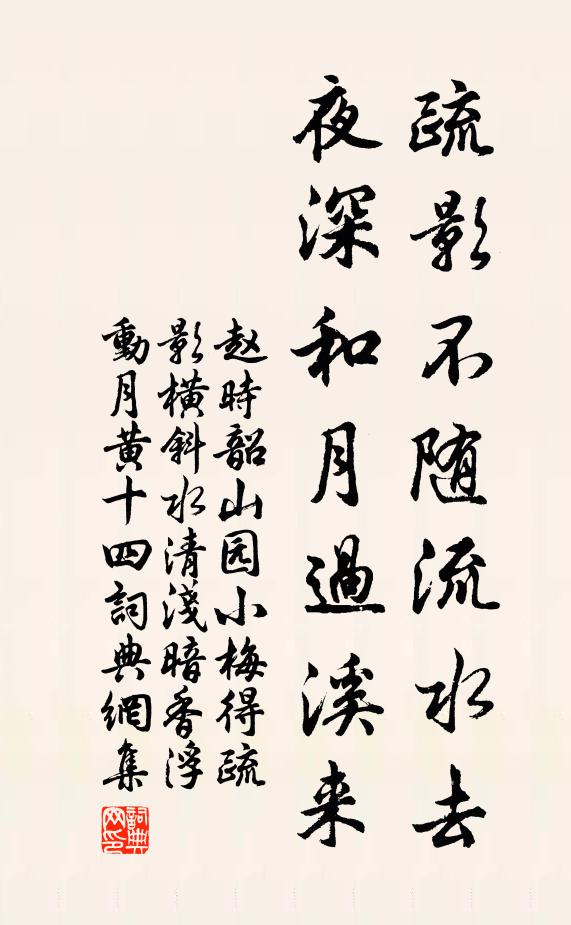 疏影不随流水去
夜深和月過溪来
赵時韶山园小梅得疏
影横斜水清淺暗香浮
動月黄十四詞典網集
詞典網印